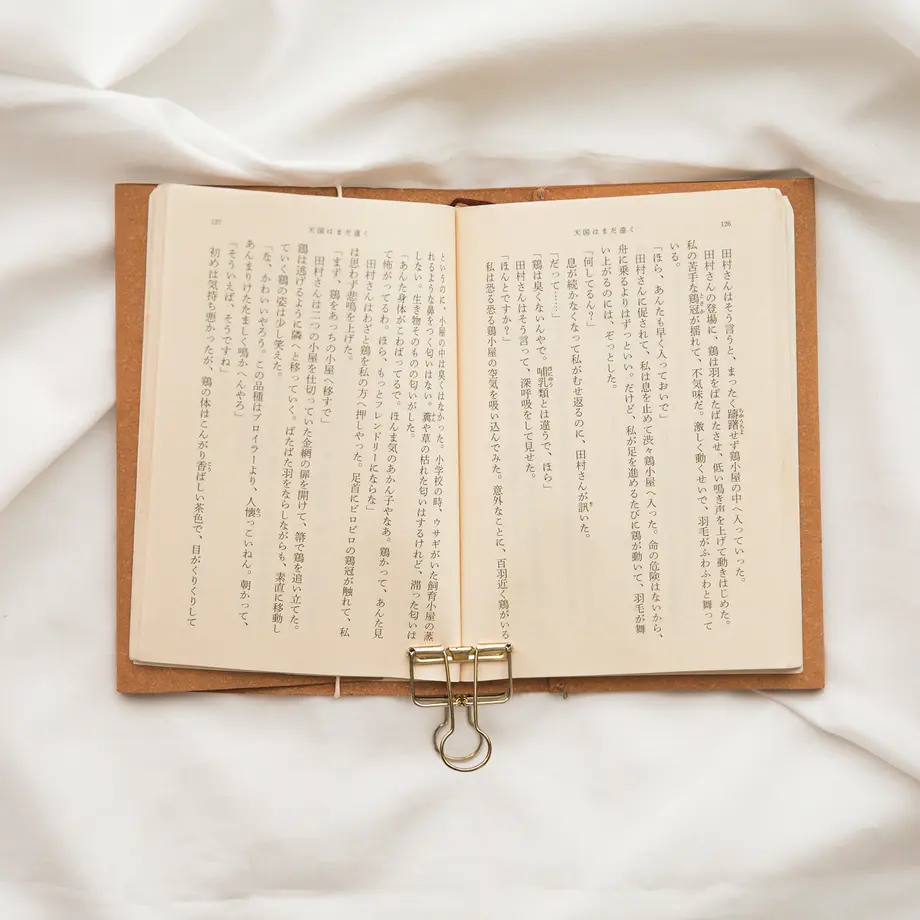 126
天国はまだ遠く
田村さんはそう言うと、まったく躊躇せず鶏小屋の中へ入っていった。
田村さんの登場に、鶏は羽をばたばたさせ、低い鳴き声を上げて動きはじめた。
私の苦手な鶏冠が揺れて、不気味だ。激しく動くせいで、羽毛がふわふわと舞って
いる。
「ほら、あんたも早く入っておいで」
田村さんに促されて、私は息を止めて渋々鶏小屋へ入った。命の危険はないから、
舟に乗るよりはずっといい。だけど、私が足を進めるたびに鶏が動いて、羽毛が舞
い上がるのには、ぞっとした。
「何してるん？」
息が続かなくなって私がむせ返るのに、田村さんが訊いた。
「だって……」
「鶏は臭くないんやで。哺乳類とは違うで、ほら」
田村さんはそう言って、深呼吸をして見せた。
「ほんとですか？」
私は恐る恐る鶏小屋の空気を吸い込んでみた。意外なことに、百羽近く鶏がいる
127
天国はまだ遠く
というのに、小屋の中は臭くはなかった。小学校の時、ウサギがいた飼育小屋の蒸
れるような鼻をつく匂いはない。糞や草の枯れた匂いはするけれど、滞った匂いは
しない。生き物そのものの匂いがした。
「あんた身体がこわばってるで。ほんま気のあかん子やなあ。鶏かって、あんた見
て怖がってるわ。ほら、もっとフレンドリーにならな」
田村さんはわざと鶏を私の方へ押しやった。足首にピロピロの鶏冠が触れて、私
は思わず悲鳴を上げた。
「まず、鶏をあっちの小屋へ移すで」
田村さんは二つの小屋を仕切っていた金網の扉を開けて、箒で鶏を追い立てた。
鶏は逃げるように隣へと移っていく。ばたばた羽をならしながらも、素直に移動し
ていく鶏の姿は少し笑えた。
「な、かわいいやろう。この品種はブロイラーより、人懐っこいねん。朝かって、
あんまりけたたましく鳴かへんやろ」
「そういえば、そうですね」
初めは気持ち悪かったが、鶏の体はこんがり香ばしい茶色で、目がくりくりして